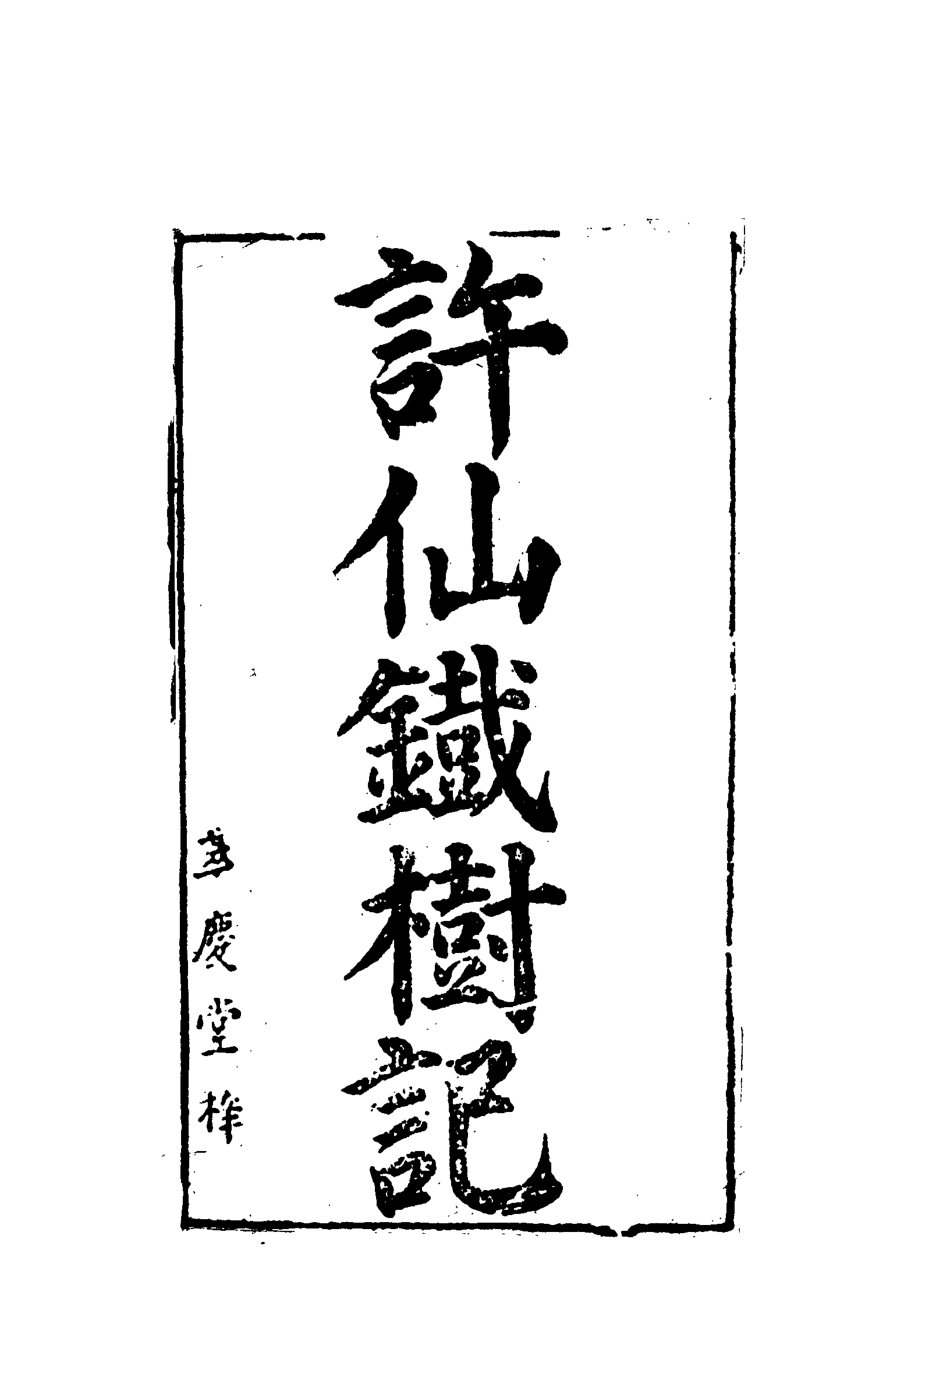 許仙鐵樹記
萃慶堂梓